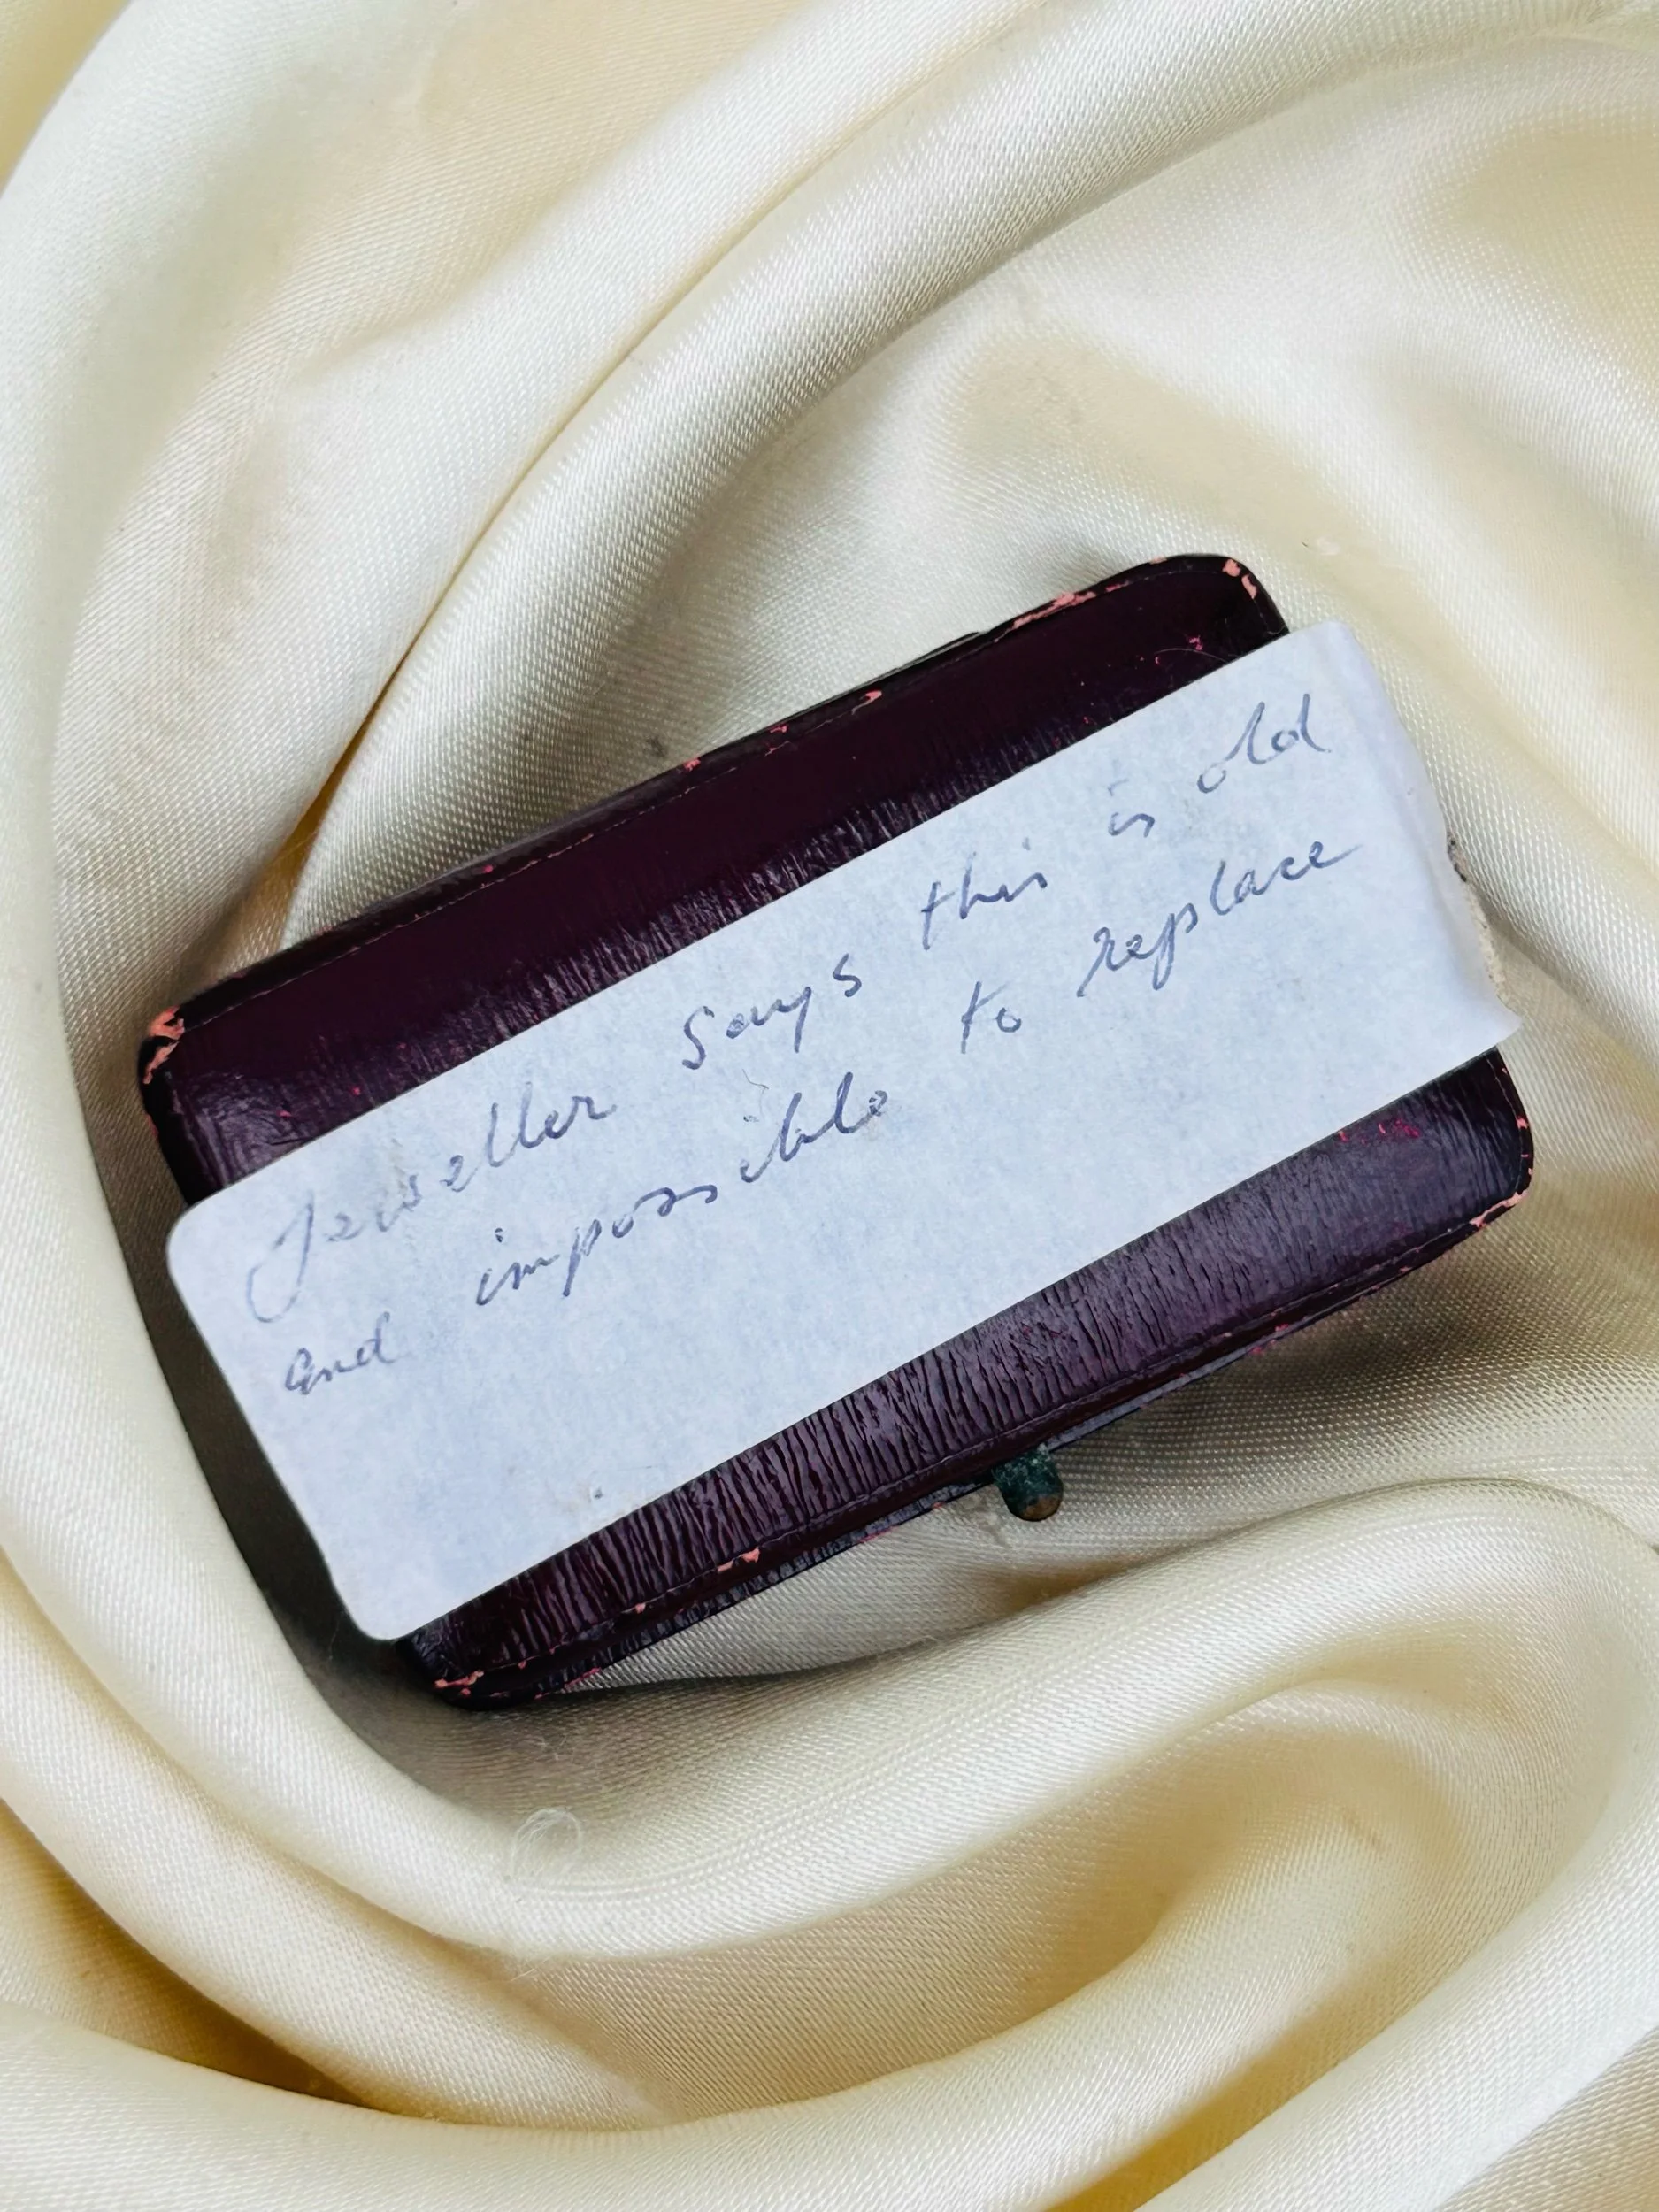 Jeweller says this is old
and impossible to replace